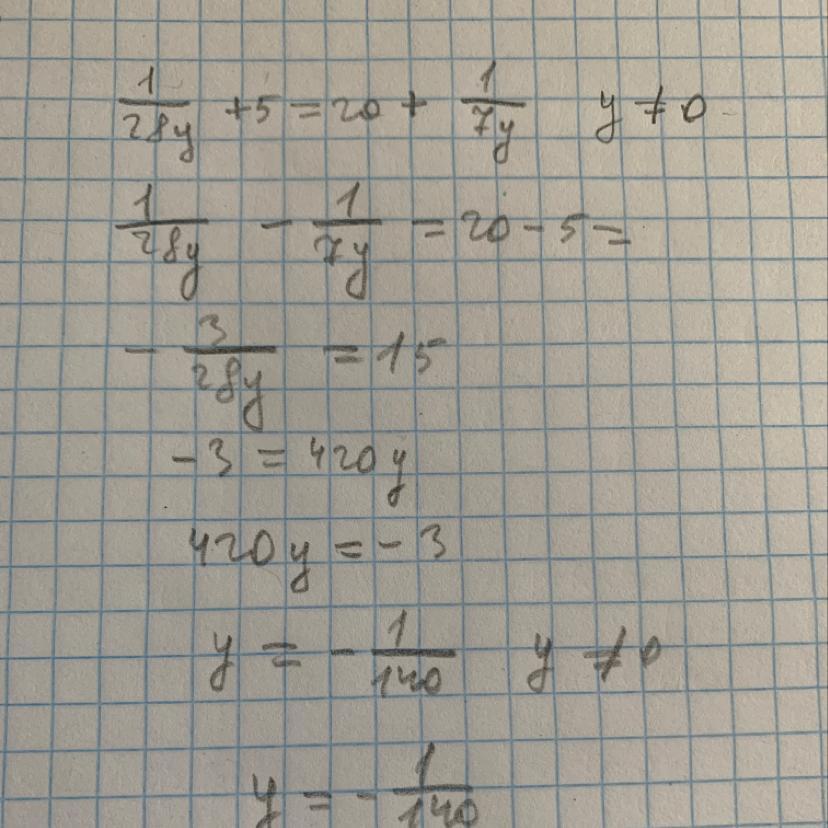 1/28y + 5 = 20 + 1/7y y ≠ 0
1/28y - 1/7y = 20 - 5 =
- 3/28y = 15
-3 = 420y
420y = -3
y = - 1/140 y ≠ 0
y = - 1/140